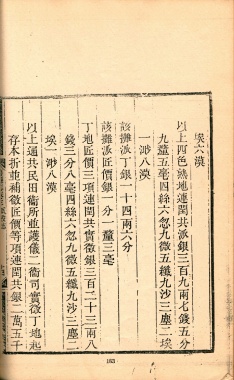 埃六漠
以上四色熟地連閏共派銀三百九兩七錢五分
九釐五毫四絲六忽九微五纖九沙三塵二埃
一渺八漠
該攤派丁銀一十四兩六分
該攤派匠價銀一分一釐三毫
丁地匠價三項連閏共實徵銀三百二十三兩八
錢三分八毫四絲六忽九微五纖九沙三塵二
埃一渺八漠
以上通共民田衞所並護儀二衞司實徵丁地起
存本折並補徵匠價等項連閏共銀二萬五千
163